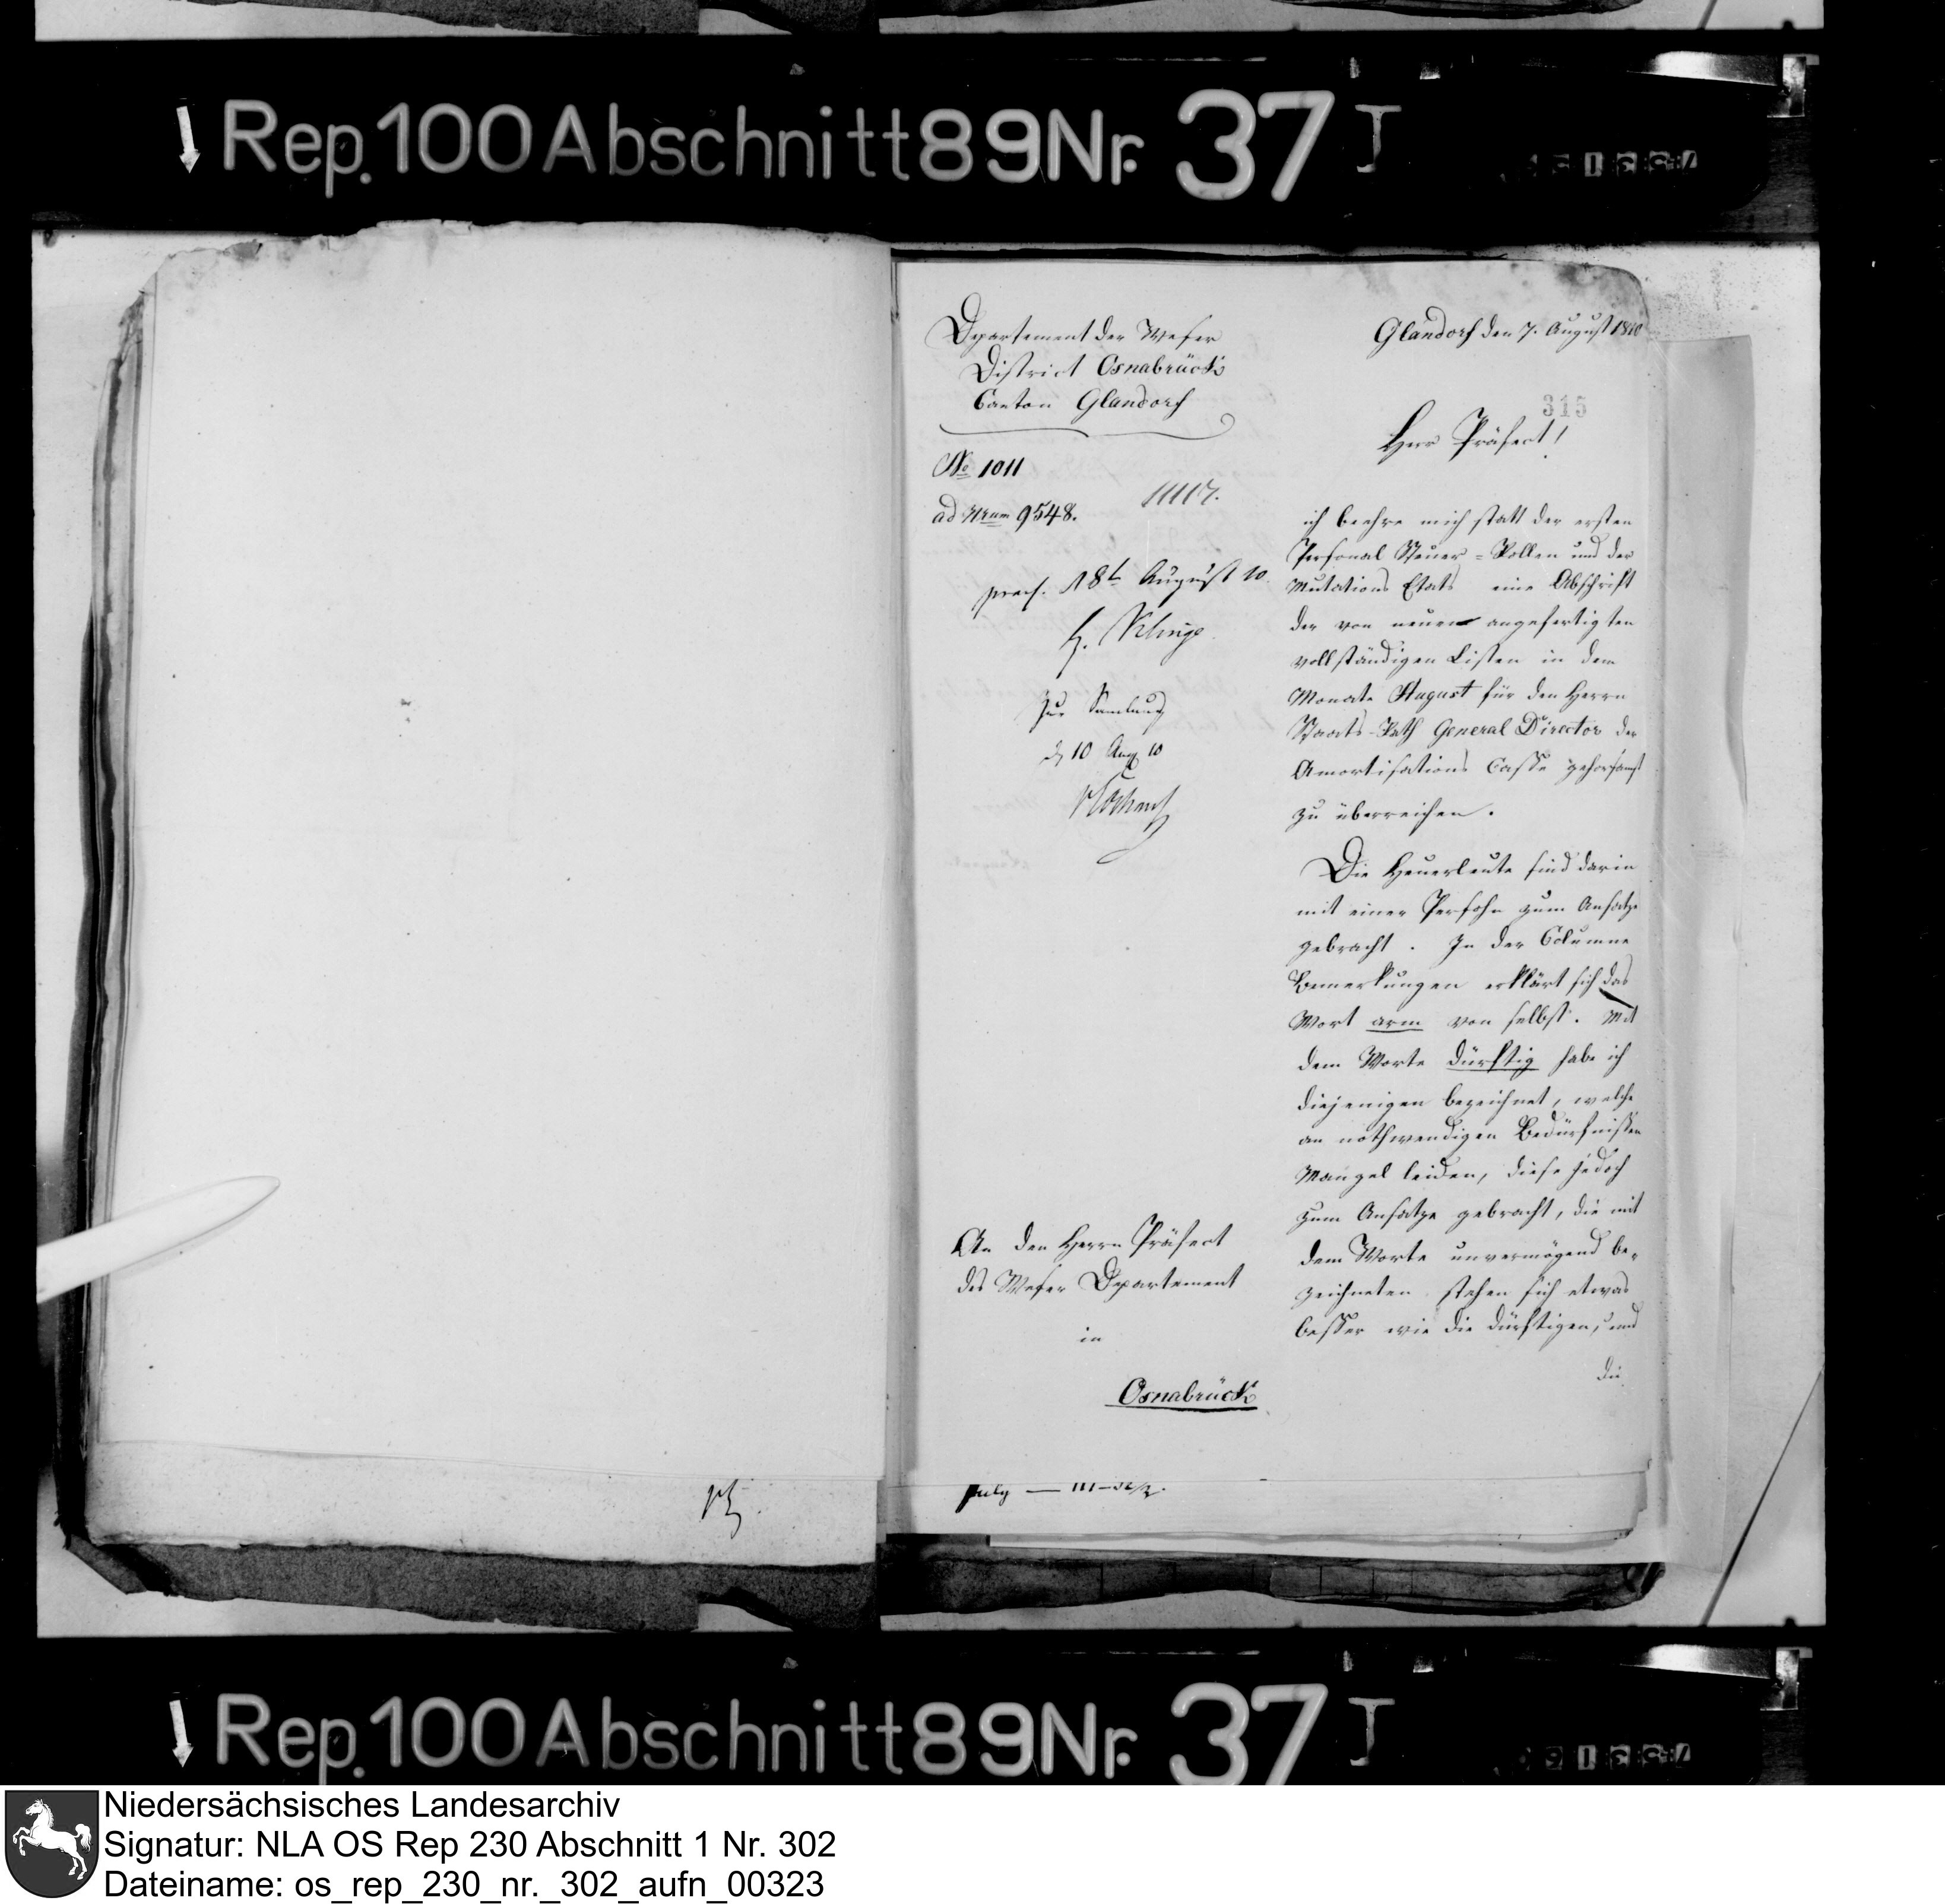 Rep. 100 Abschnitt 89 Nr. 37 I
Departement der Weser
District Osnabrück
Canton Glandorf
No 1011
ad Nrum 9548.
praes. 18t August 10
H. Klinge
Zur Samlung
d 10 Aug 10
An den Herrn Präfect
des Weser Departement
in
Osnabrück
Glandorf den 7. August 1810
315
Herr Präfect!
ich beehre mich statt der ersten
Personal Steuer-Rollen und der
Mutations Etats eine Abschrift
der von neuen angefertigten
vollständigen Listen in dem
Monate August für den Herrn
Staats-Rath General Director der
Amortisations Casse gehorsamst
zu überreichen.
Die Heuerleute sind darin
mit einer Persohn zum Ansatze
gebracht. In der Columne
Bemerkungen erklärt sich das
Wort arm von selbst. Mit
dem Worte dürftig habe ich
diejenigen bezeichnet, welche
an nothwendigen Bedürfnissen
Mangel leiden, diese jedoch
zum Ansatze gebracht, die mit
dem Worte unvermögend be-
zeichneten stehen sich etwas
besser wie die dürftigen, und
die
July —
Rep. 100 Abschnitt 89 Nr. 37 I
Niedersächsisches Landesarchiv
Signatur: NLA OS Rep 230 Abschnitt 1 Nr. 302
Dateiname: os_rep_230_nr._302_aufn_00323